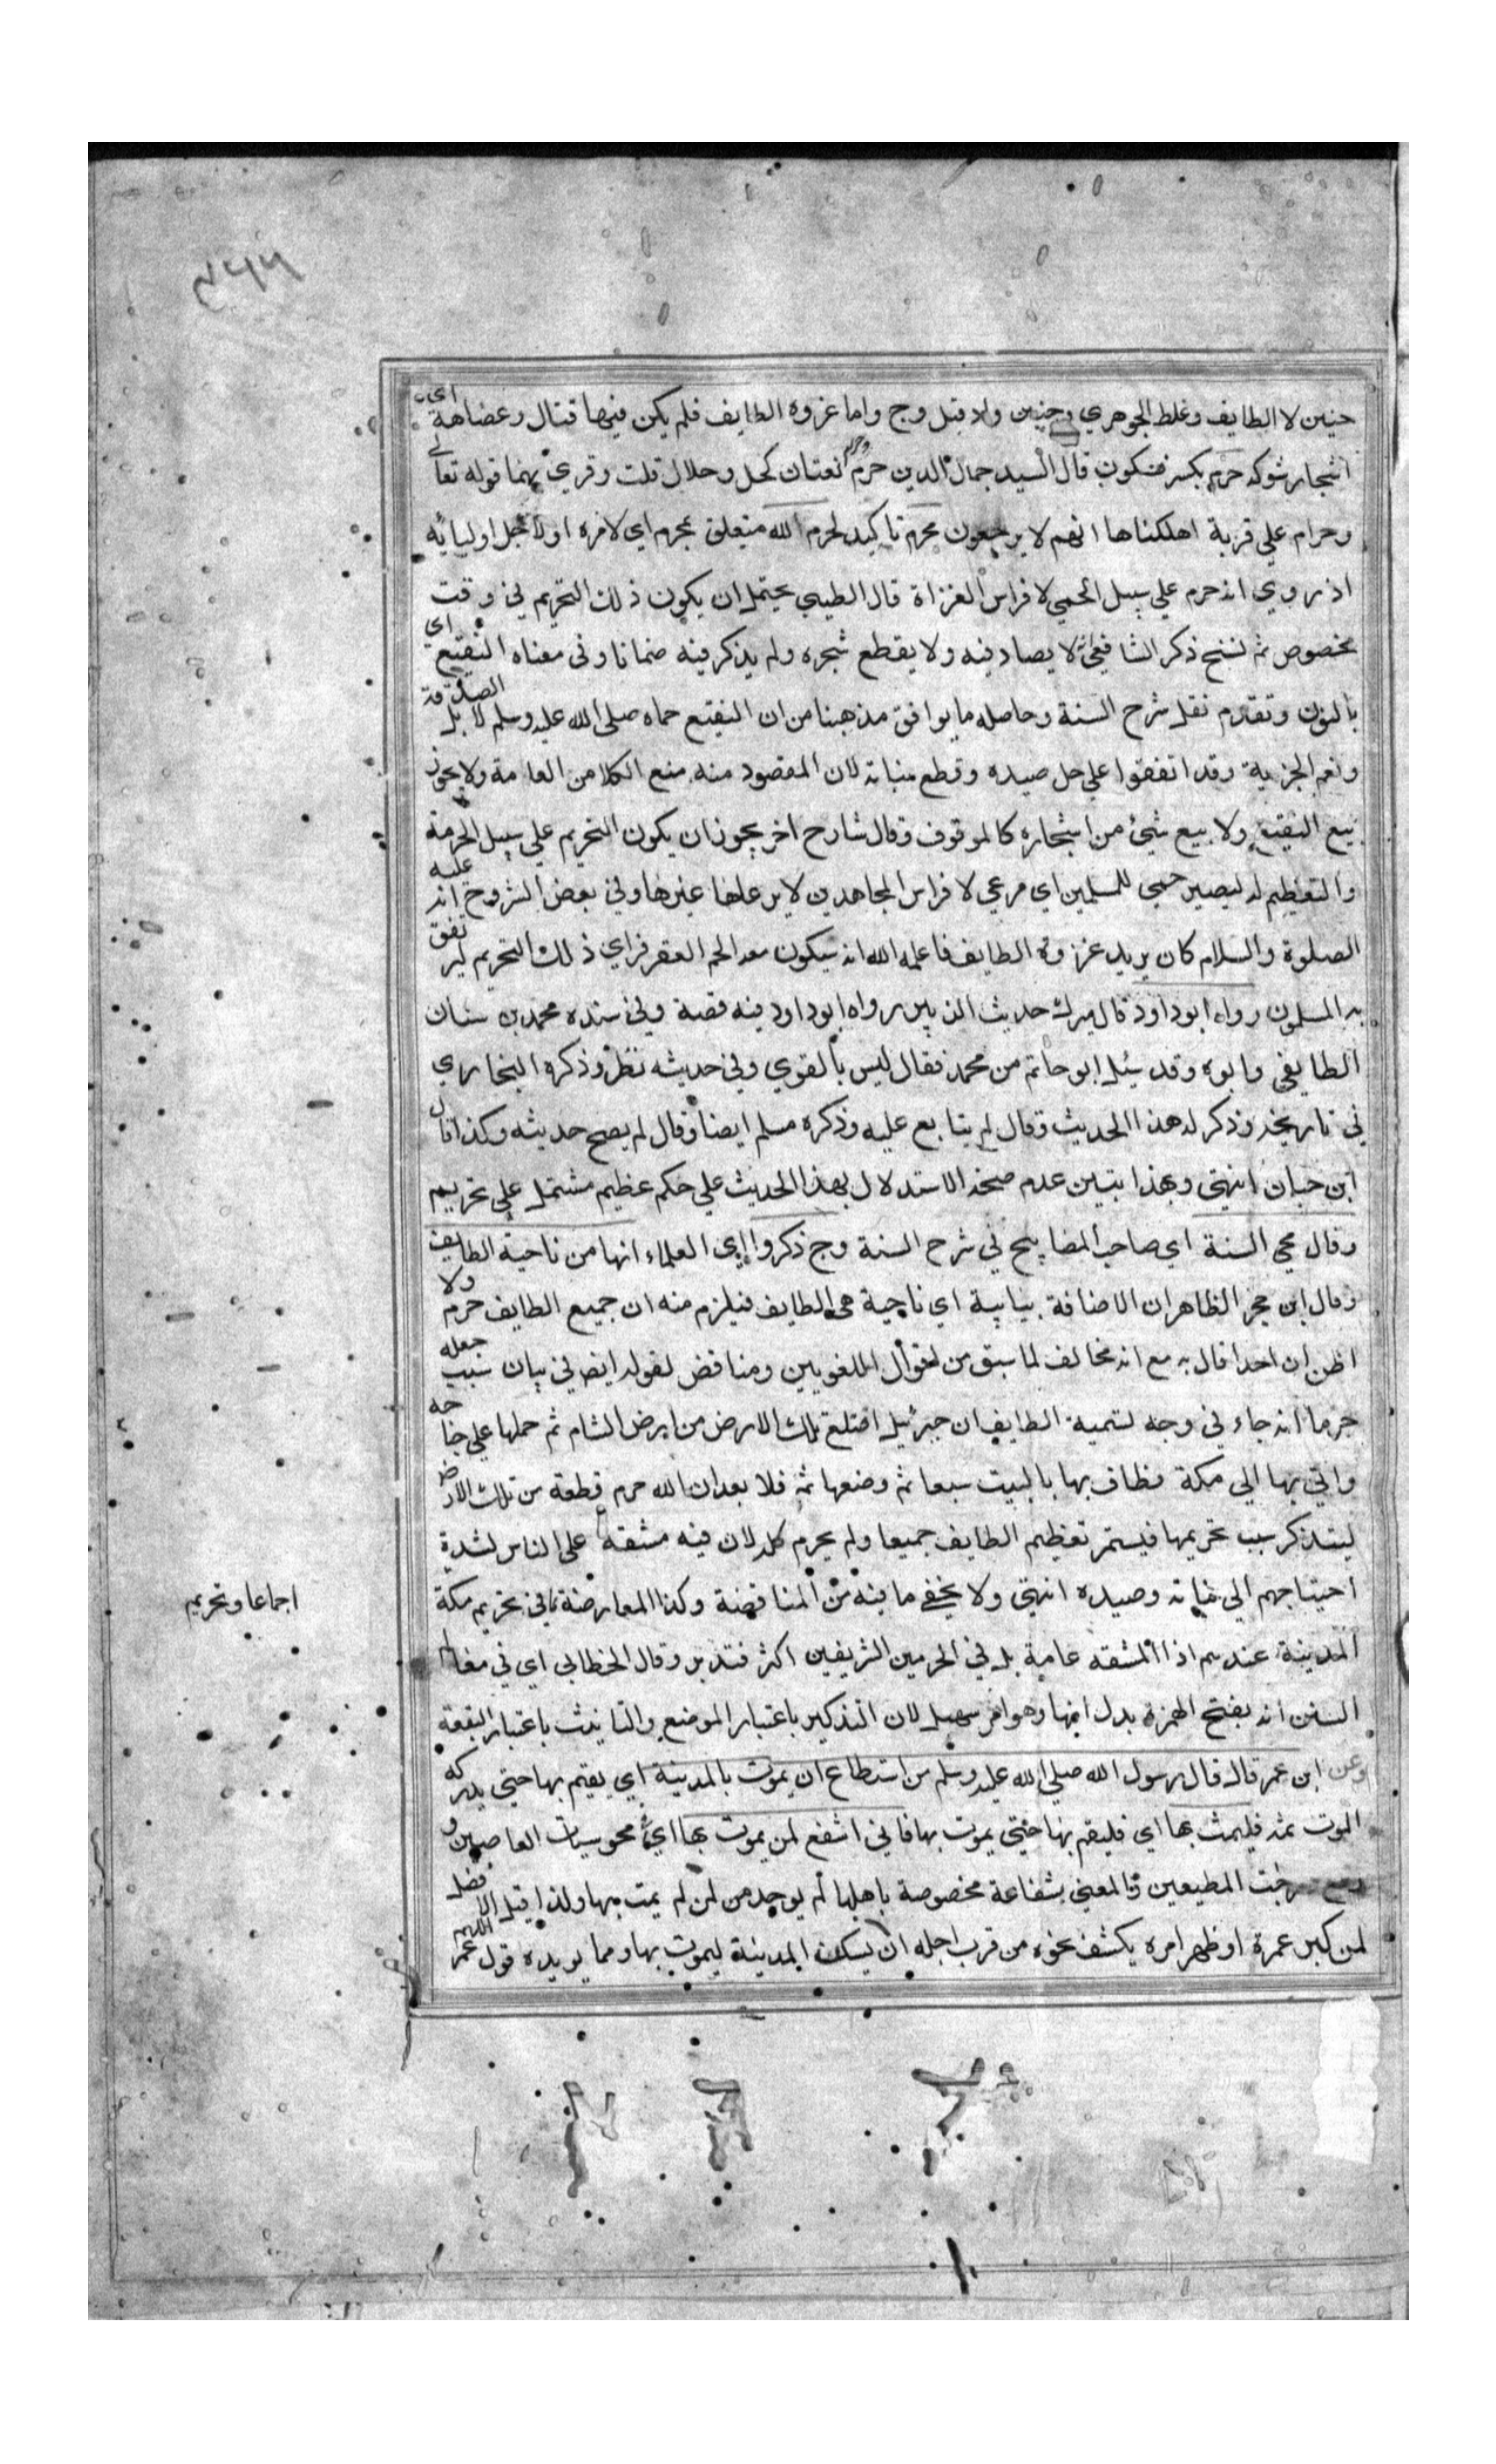 حنين لا الطايف وغلط الجوهري وحنين ولا قبل وج واما غزوه الطايف فلم يكن فيها قتال وعضاهه اي
اشجار شوكه حرم بكسر فسكون قال السيد جمال الدين حرم وحرام نعتان كحل وحلال قلت وقري بهما قوله تعالى
وحرام علي قرية اهلكناها انهم لا يرجعون محرم تاكيد لحرم الله متعلق بمحرم اي لامره او لاجل اوليائه
اذ روي انه حرم علي سبيل الحمي لافراس الغزاة قال الطيبي يحتمل ان يكون ذلك التحريم في وقت
مخصوص ثم نسخ ذكر الشافعي لا يصاد فيه ولا يقطع شجره ولم يذكر فيه ضمانا وفي معناه النقيع اي
بالنون وتقدم نقل شرح السنة وحاصله ما يوافق مذهبنا من ان النقيع حماه صلي الله عليه وسلم لابل الصدقة
ونعم الجزية وقد اتفقوا علي حل صيده وقطع نباته لان المقصود منه منع الكلا من العامة ولا يجوز
بيع النقيع ولا بيع شئ من اشجاره كالموقوف وقال شارح اخر يجوز ان يكون التحريم علي سبيل الحرمة
والتعظيم له ليصير حمي للمسلمين اي مرعي لافراس المجاهدين لا يرعاها غيرها وفي بعض الشروح انه عليه
الصلوة والسلام كان يريد غزوة الطايف فاعلمه الله انه سيكون معه الجم الغفير فراي ذلك التحريم ليرتفق
به المسلمون رواه ابوداود قال ميرك حديث الزبير رواه ابوداود فيه قصة وفي سنده محمد بن سنان
الطايفي وابوه وقد سئل ابو حاتم من محمد فقال ليس بالقوي وفي حديثه نظر وذكره البخاري
في تاريخه وذكر له هذا الحديث وقال لم يتابع عليه وذكره مسلم ايضا وقال لم يصح حديثه وكذا قال
ابن حبان انتهي وبهذا يتبين عدم صحة الاستدلال بهذا الحديث علي حكم عظيم مشتمل علي تحريم
وقال محي السنة اي صاحب المصابيح في شرح السنة وج ذكروا اي العلماء انها من ناحية الطايف
وقال ابن حجر الظاهر ان الاضافة بيانية اي ناحية هي الطايف فيلزم منه ان جميع الطايف حرم ولا
اظن ان احدا قال به مع انه مخالف لما سبق من اقوال اللغويين ومناقض لقوله ايضا في بيان سبب جعله
حرما انه جاء في وجه تسمية الطايف ان جبرئيل اقتلع تلك الارض من ارض الشام ثم حملها علي جناحه
واتي بها الي مكة فطاف بها بالبيت سبعا ثم وضعها ثم فلا بعد ان الله حرم قطعة من تلك الارض
ليتذكر سبب تحريمها فيستمر تعظيم الطايف جميعا ولم يحرم كله لان فيه مشقة علي الناس لشدة
احتياجهم الي نباته وصيده انتهي ولا يخفي ما فيه من المناقضة وكذا المعارضة في تحريم مكة
اجماعا وتحريم
المدينة عندهم اذ المشقه عامة بل في الحرمين الشريفين اكثر فتدبر وقال الخطابي اي في معالم
السنن انه بفتح الهمزة بدل انها وهو امر سهل لان التذكير باعتبار الموضع والتانيث باعتبار البقعة
وعن ابن عمر قال قال رسول الله صلي الله عليه وسلم من استطاع ان يموت بالمدينة اي يقيم بها حتي يدركه
الموت ثمه فليمت بها اي فليقم بها حتي يموت بها فاني اشفع لمن يموت بها اي محو سيات العاصين و
رفع درجت المطيعين والمعني بشفاعة مخصوصة باهلها لم يوجد من لمن لم يمت بها ولذا قيل الافضل
لمن كبر عمره او ظهر امره بكشف نحوه من قرب اجله ان يسكن المدينة ليموت بها ومما يويده قول عمر اللهم